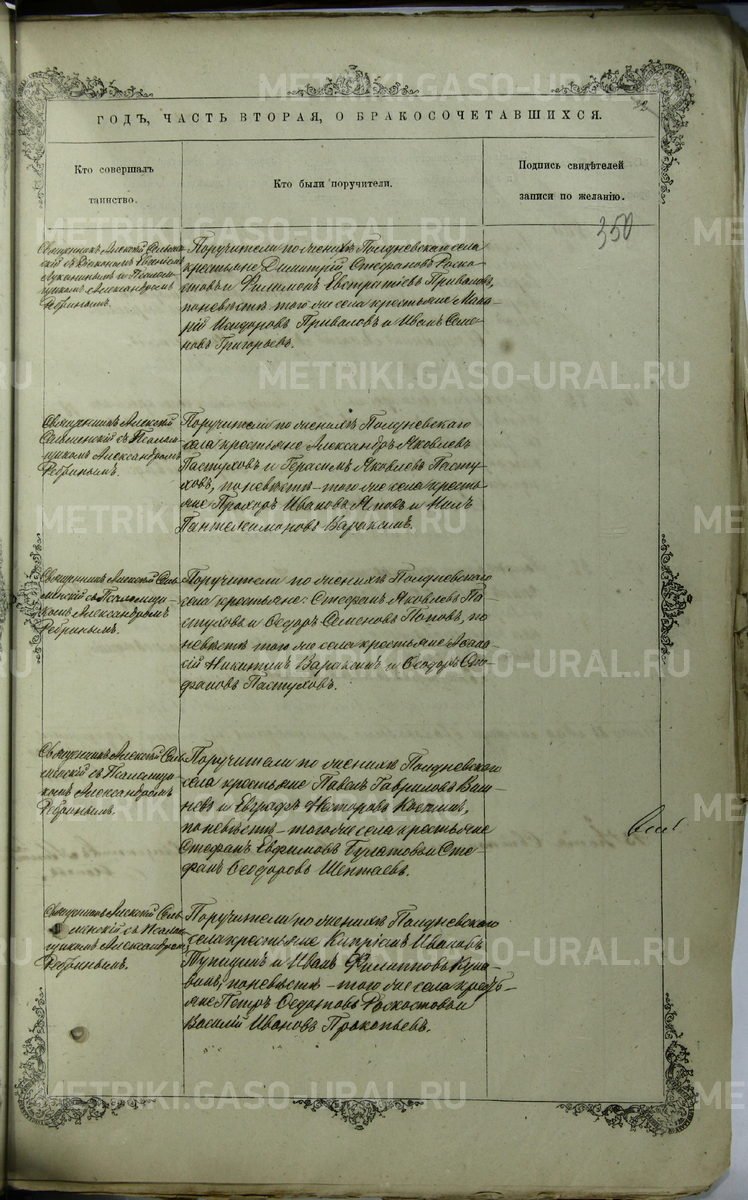 ГОДЪ, ЧАСТЬ ВТОРАЯ, О БРАКОСОЧЕТАВШИХСЯ.
Кто совершалъ
таинство.
Кто были поручители.
Подпись свидѣтелей
записи по желанію.
350
Священникъ Алексій
Діакономъ
и Псалом-
щикомъ Александромъ
Ребринымъ.
Поручители по женихѣ Полдневскаго села
крестьяне Димитрій Стефановъ Роско-
стовъ и Филимонъ Евстратіевъ Приваловъ,
по невѣстѣ того же села крестьяне Мака-
рій Исидоровъ Приваловъ и Иванъ Семе-
новъ Григорьевъ.
Священникъ Алексій
съ Псалом-
щикомъ Александромъ
Ребринымъ.
Поручители по женихѣ Полдневскаго
села крестьяне Александръ Яковлевъ
Пастуховъ и Герасимъ Яковлевъ Пасту-
ховъ, по невѣстѣ – того же села кресть-
яне Прохоръ Ивановъ и Нилъ
Пантелеимоновъ Варакинъ.
Священникъ Алексій
съ Псаломщи-
комъ Александромъ
Ребринымъ.
Поручители по женихѣ Полдневскаго
села крестьяне: Стефанъ Яковлевъ Па-
стуховъ и Ѳеодоръ Семеновъ Поповъ, по
невѣстѣ того же села крестьяне Аѳана-
сій Никитинъ Варакинъ и Ѳеодоръ Сте-
фановъ Пастуховъ.
Священникъ Алексій
съ Псаломщи-
комъ Александромъ
Ребринымъ.
Поручители по женихѣ Полдневскаго
села крестьяне Павелъ Гавриловъ
и Евграфъ Несторовъ Костинъ,
по невѣстѣ – того же села крестьяне
Стефанъ Евфимовъ Булатовъ и Сте-
фанъ Ѳеодоровъ Шептаевъ.
Священникъ Алексій
съ Псалом-
щикомъ Александромъ
Ребринымъ.
Поручители по женихѣ Полдневскаго
села крестьяне Кипріанъ Ивановъ
Тупицинъ и Иванъ Филипповъ
по невѣстѣ – того же села кресть-
яне Петръ Ѳедотовъ Роскостовъ и
Василій Ивановъ Прокопьевъ.
METRIKI.GASO-URAL.RU